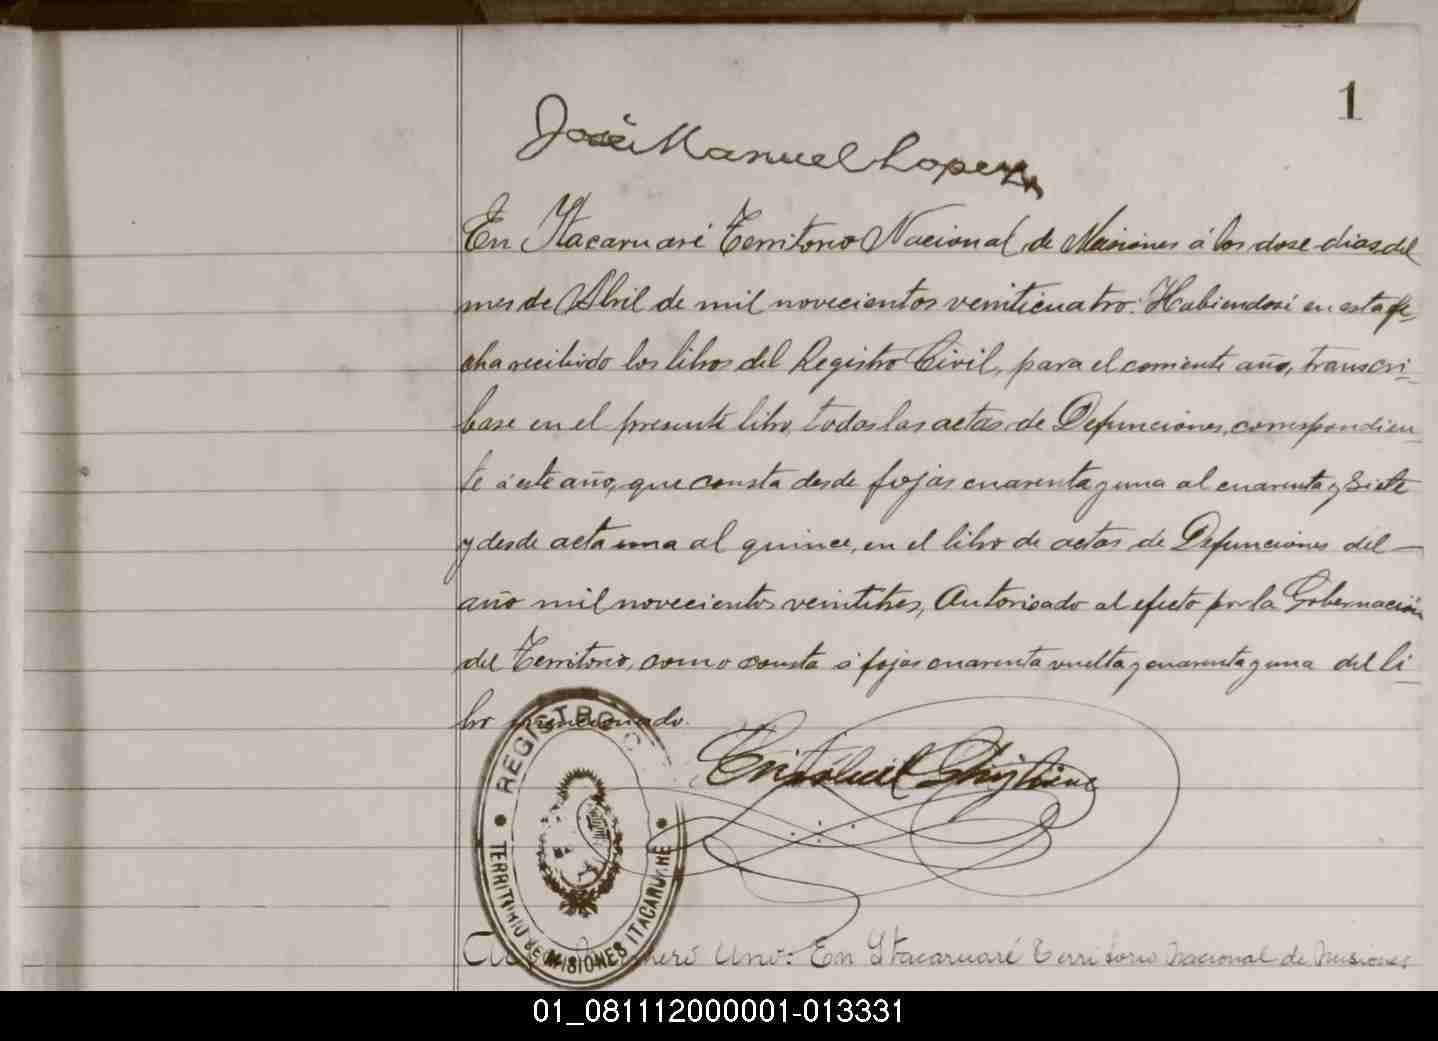 1
José Manuel Lopez
En Itacaruaré Territorio Nacional de Misiones á los dose dias del
mes de Abril de mil novecientos veinticuatro: Habiendosé en esta fe-
cha recibido los libros del Registro Civil, para el corriente año, transcri-
base en el presente libro, todas las actas de Defunciones, correspondien-
te á este año, que consta desde fojas cuarenta y una al cuarenta y siete
y desde acta una al quince, en el libro de actas de Defunciones del —
año mil novecientos veintitres, Autorisado al efecto por la Gobernación
del Territorio, como consta á fojas cuarenta vuelta y cuarenta y una del li-
bro mencionado.
REGISTRO C
TERRITORIO DE MISIONES ITACARUARÉ
Uno: En Itacaruaré Territorio Nacional de Misiones
01_081112000001-013331